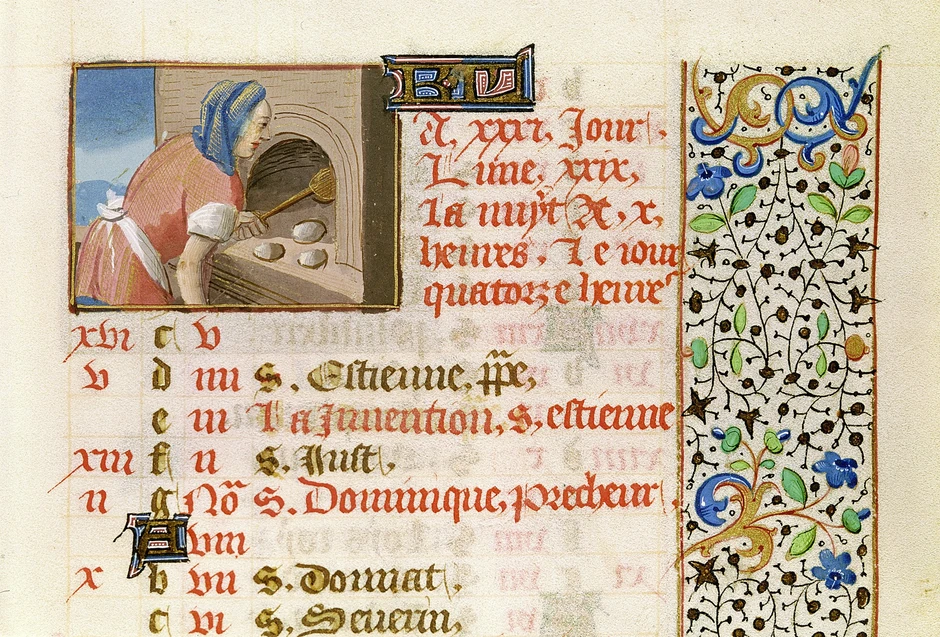 KL
A, xxxi, Jour,
Lune, xxix,
La nuyt A, x,
heures. Le iour
quatorze heures
xvi c v
v d iiii S. Estienne, ppe,
e iii La Invention, S, estienne
xiii f ii S. Iust,
ii g No S. Dominique, precheur,
A viii
x b vii S. Donnat,
c vi S. Severin,